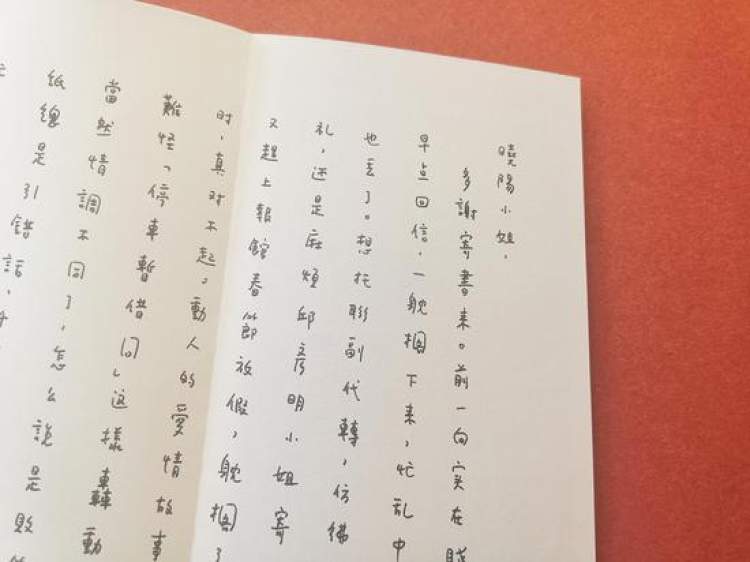 曉陽小姐，
多謝寄書来。前一向实在
早点回信，一躭擱下来，忙乱中
也丢了。想托聯副代轉，仿彿
礼，还是麻煩邱彦明小姐寄
又趕上報舘春節放假，躭擱了
时，真对不起。動人的愛情故事
難怪「停車暫借问」这樣轟動
當然情調不同了，怎么說是敗
紙總是引錯話，